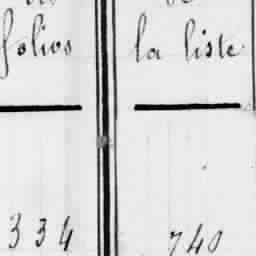 folios
la liste
334
740